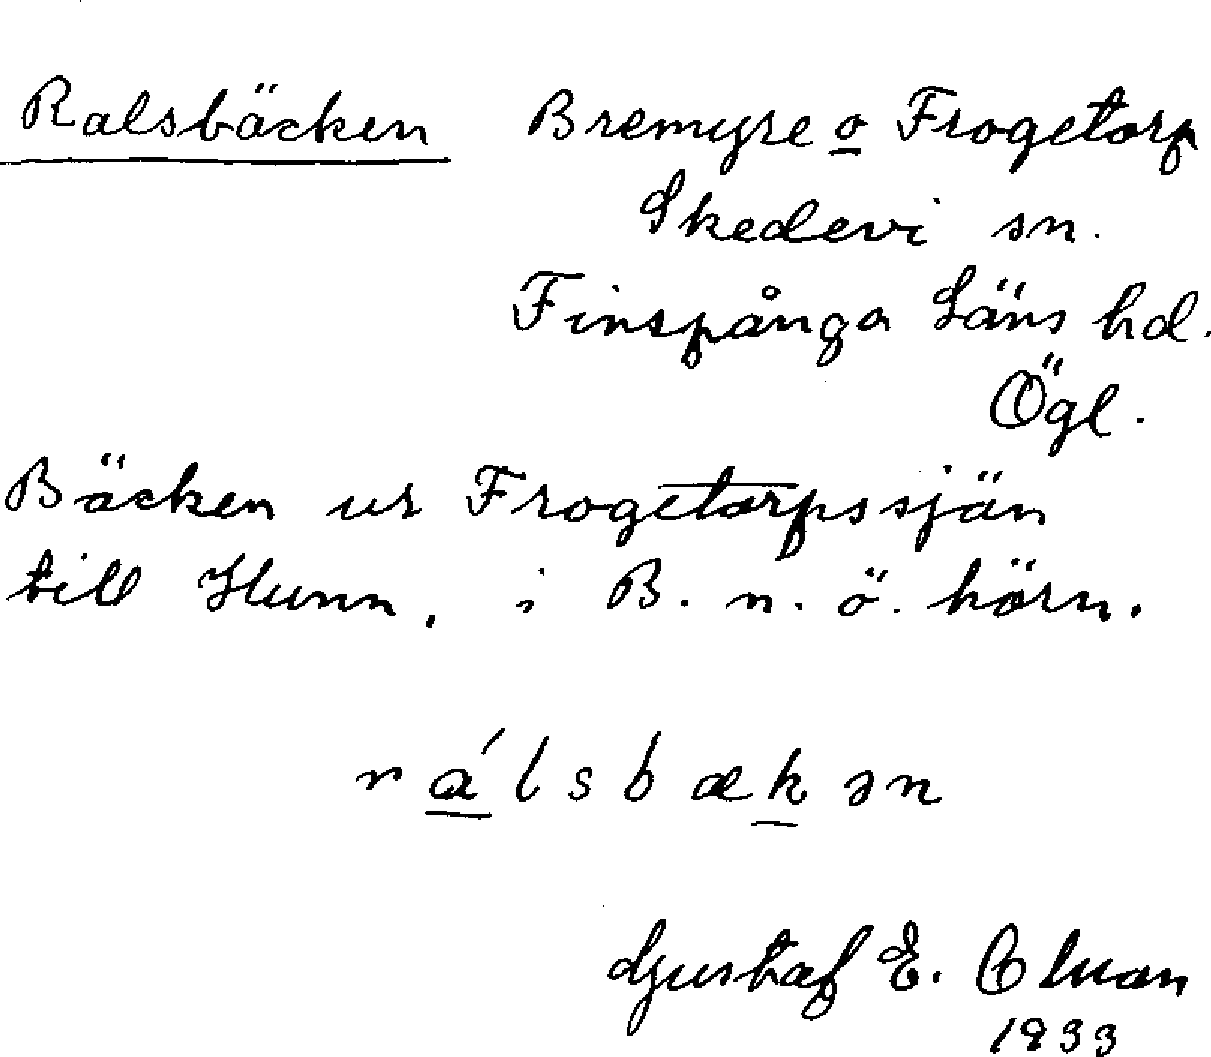 Ralsbäcken Bremyre o Frogetorp
Skedevi sn.
Finspånga Läns hd.
Ögl.
Bäcken ur Frogetorpssjön
till Hunn, i B. n. ö. hörn.
rálsbækən
Gustaf E.
1933